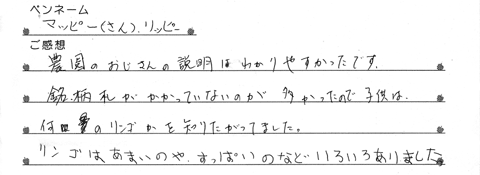 ペンネーム
マッピー(さん).リッピー
ご感想
農園のおじさんの説明はわかりやすかったです.
銘柄札がかかっていないのが多かったので子供は.
何のリンゴかを知りたがってました。
リンゴはあまいのや.すっぱいのなどいろいろありました